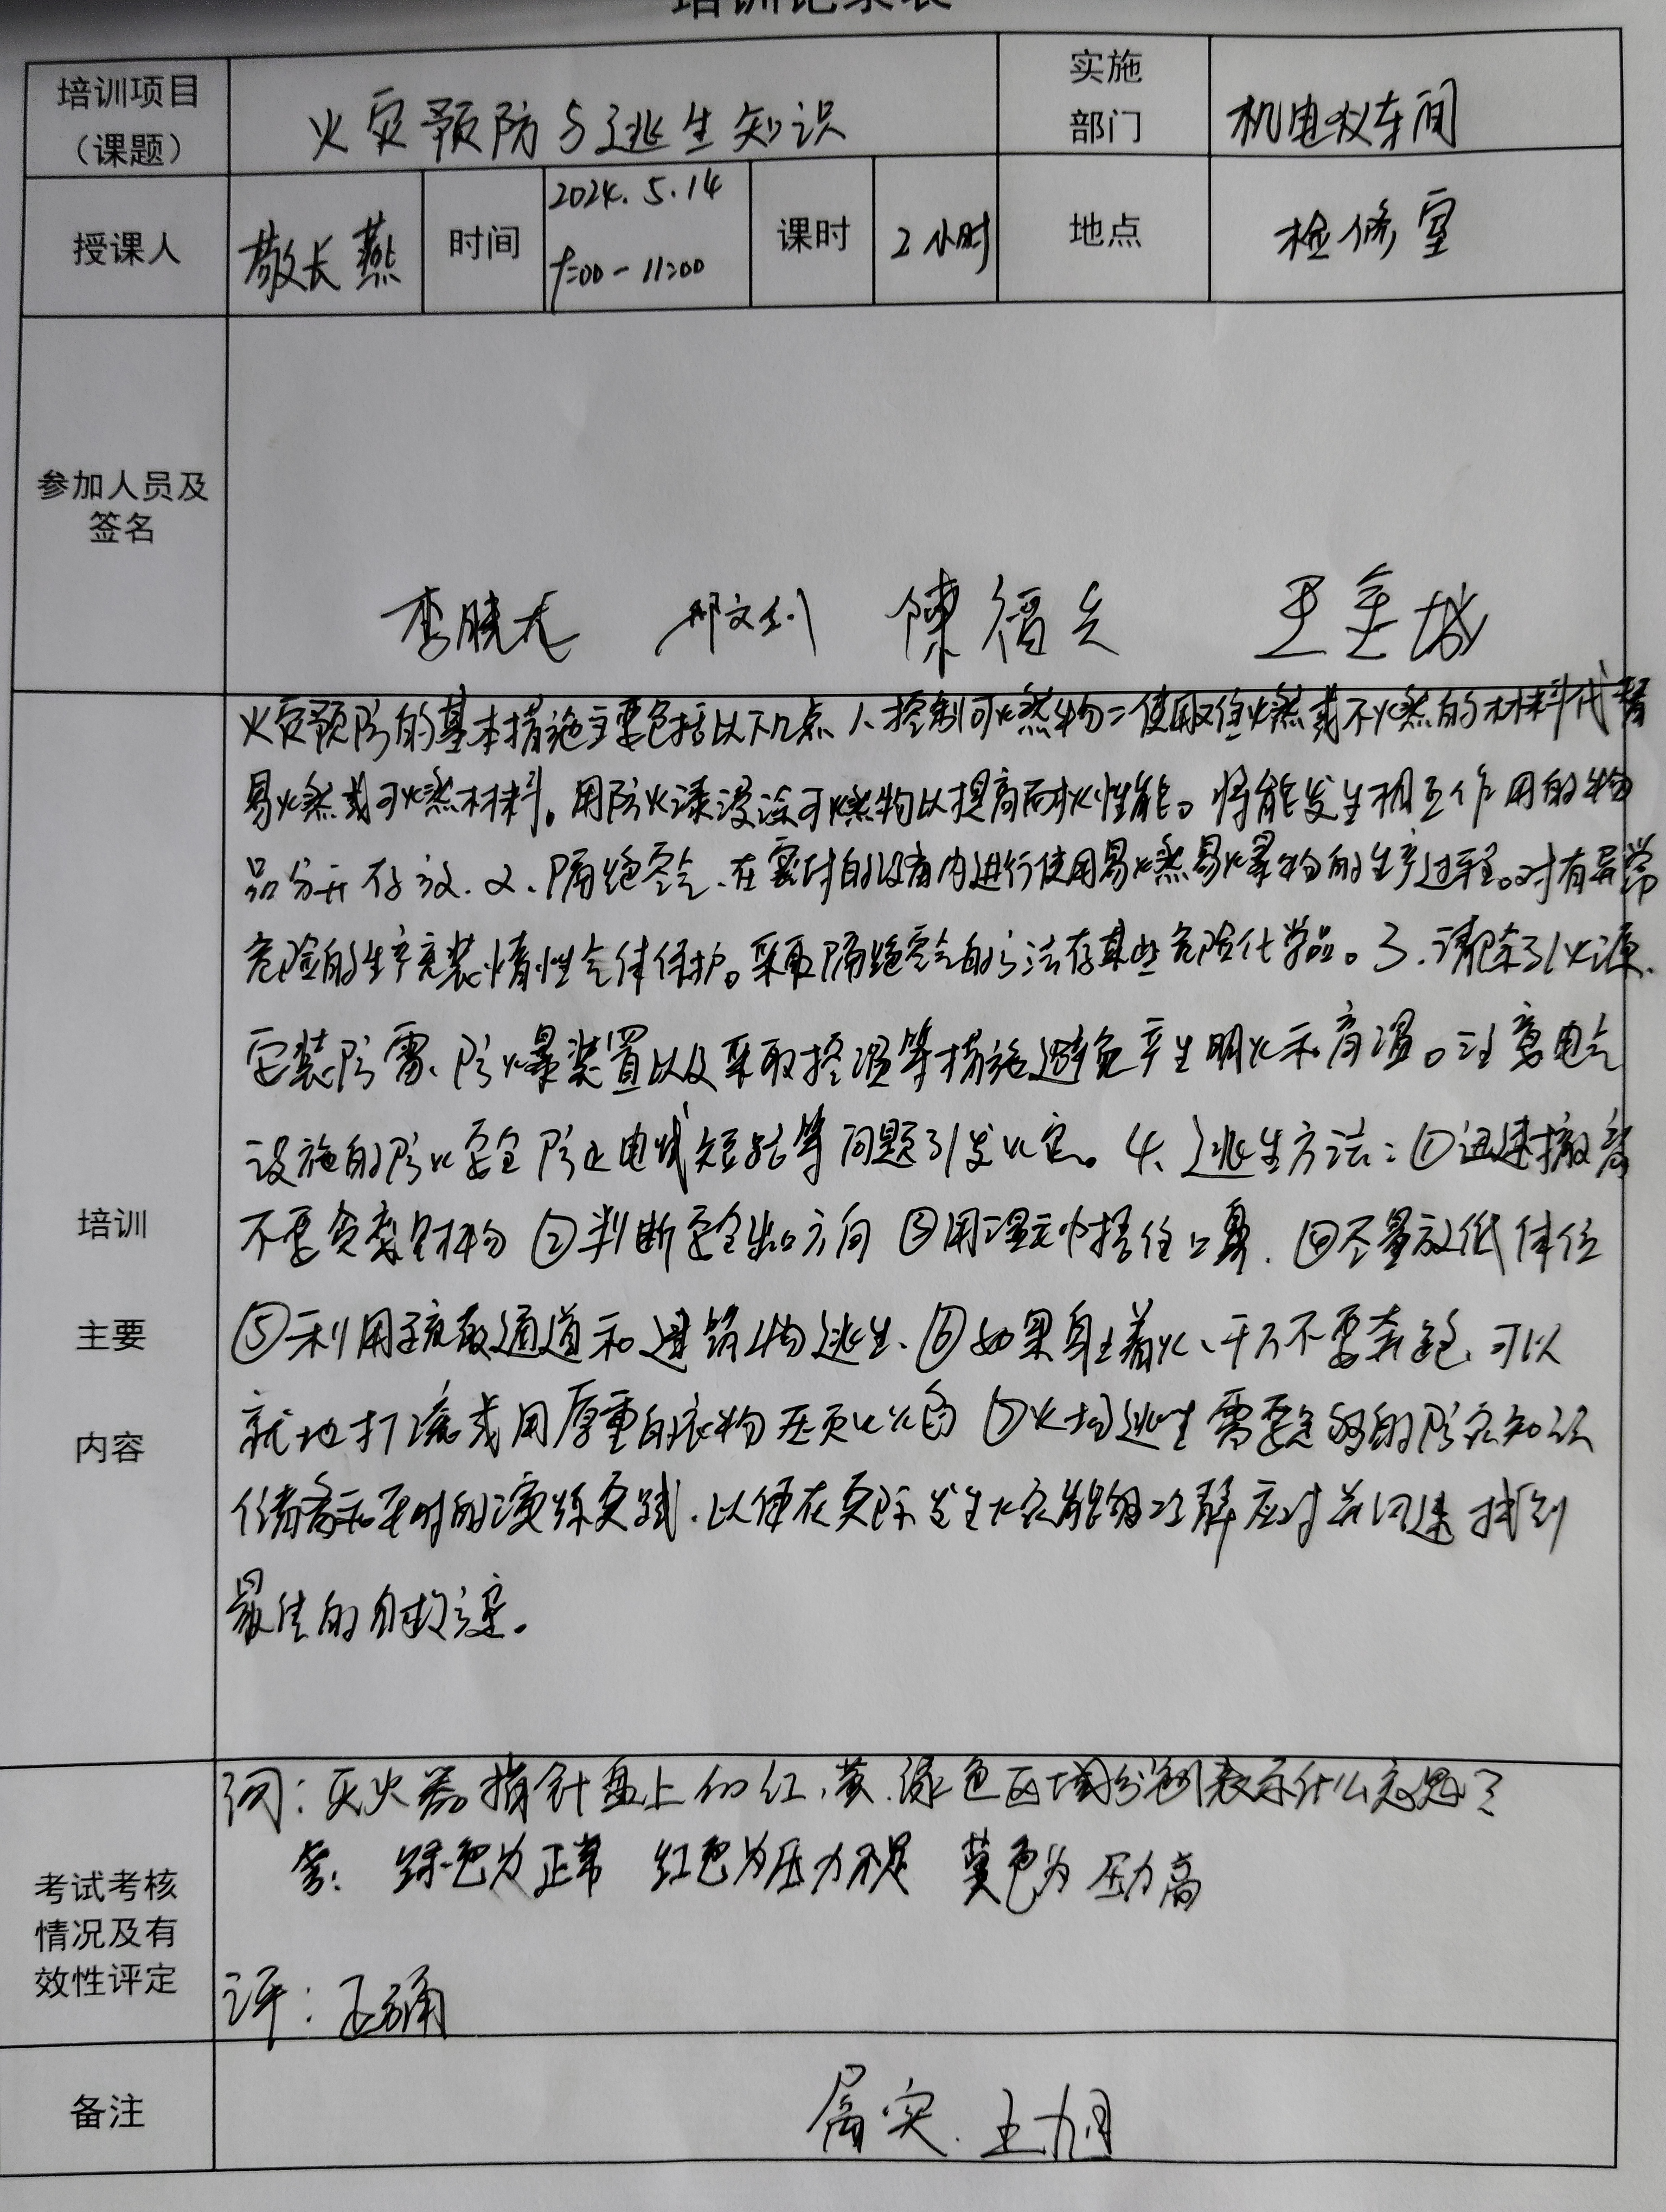 培训记录表
培训项目（课题） 火灾预防与逃生知识 实施部门 机电仪车间
授课人 敬长燕 时间 2024.5.14 9:00-11:00 课时 2小时 地点 检修室
参加人员及签名
李晓龙 陳福兵 王金城
培训主要内容
火灾预防的基本措施主要包括以下几点 1、控制可燃物：使用难燃或不燃的材料代替
易燃或可燃材料。用防火漆浸涂可燃物以提高耐火性能。将能发生相互作用的物
品分开存放.2、隔绝空气、在密封的设备内进行使用易燃易爆物的生产过程。对有异常
危险的生产充装惰性气体保护。采取隔绝空气的方法存某些危险化学品。3.清除引火源.
安装防雷、防爆装置以及采取控温等措施避免产生明火和高温。注意电气
设施的防火安全防止电线短路等问题引发火灾。4、逃生方法：①迅速撤离
不要贪恋财物 ②判断安全出口方向 ③用湿毛巾捂住口鼻. ④尽量放低体位
⑤利用疏散通道和建筑物逃生、⑥如果身上着火、千万不要奔跑、可以
就地打滚或用厚重的衣物压灭火苗 ⑦火场逃生需要足够的防灾知识
储备和平时的演练实践.以便在实际发生火灾能够冷静应对并迅速找到
最佳的自救
考试考核情况及有效性评定
问：灭火器指针盘上的红、黄.绿色区域分别表示什么意思？
答：绿色为正常 红色为压力不足 黄色为压力高
评：正确
备注 属实. 王旭